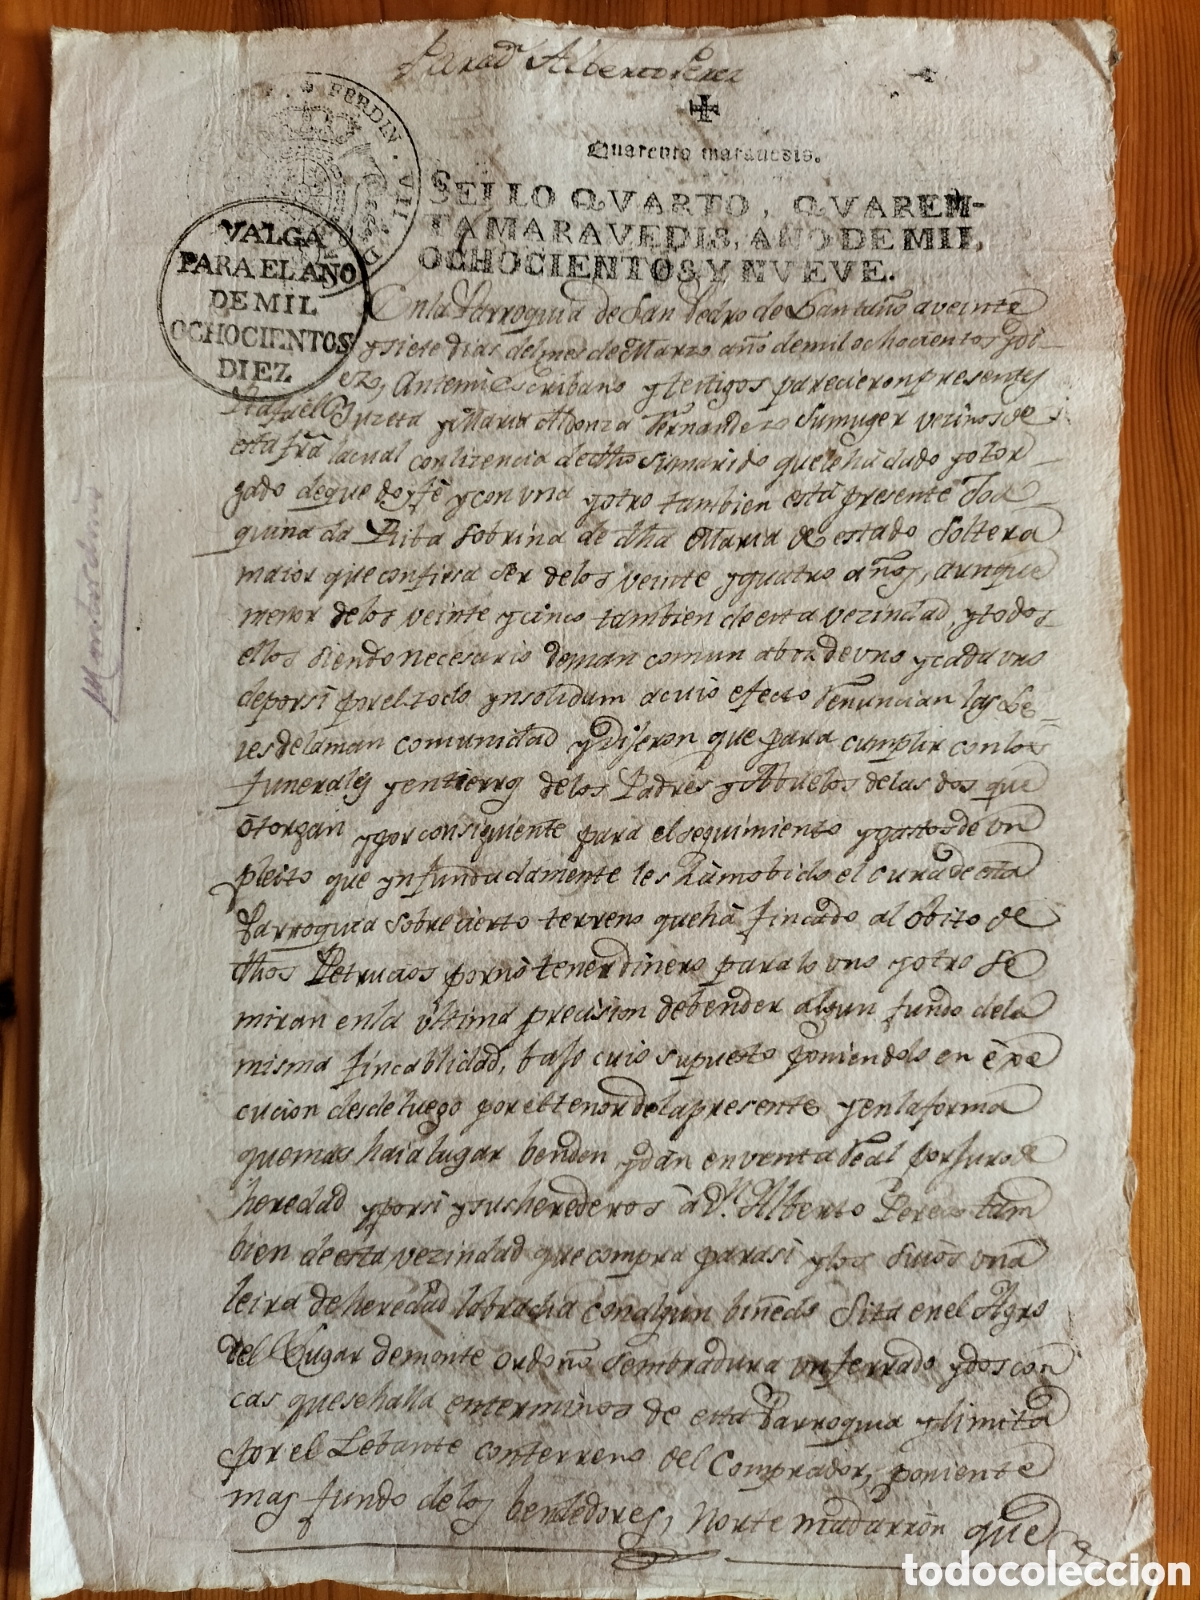 Para dn Alberto Perez
Quarenta marauedis.
SELLO QVARTO, QVAREN-
TA MARAVEDIS, AÑO DE MIL
OCHOCIENTOS Y NVEVE.
FERDIN. VII D
VALGA
PARA EL AÑO
DE MIL
OCHOCIENTOS
DIEZ
En la Parroquia de San Pedro de a veinte
y siete dias del mes de Marzo año de mil ochocientos y di-
ez, Antemi Escribano y testigos parecieron presentes
Rafael y Maria Aldonza Fernandez su muger vezinos de
esta fra la cual con lizencia de dho su marido que le há dado y otor-
gado de que doy fé y con una y otro tambien está presente Joa-
quina da Riba Sobrina de dha Maria de estado Soltera
maior que confiesa ser de los veinte y quatro años, aunque
menor de los veinte y cinco tambien de esta vezindad, y todos
ellos siendo necesario de man comun a boz de uno y cada uno
de por si por el todo ynsolidum a cuio efecto Renuncian las Le-
ies de la man comunidad y Dijeron que para cumplir con los
funerales y entierros de los Padres y Abuelos de las dos que
otorgan y por consiguiente para el seguimiento y gastos de un
pleito que ynfundadamente les há mobido el cura de esta
Parroquia sobre cierto terreno que há fincado al óbito de
dhos Petrucios por nó tener dinero para lo uno y otro se
miran en la ultima precision de bender algun fundo de la
misma fincablidad, bajo cuio supuesto poniendolo en exe
cucion desde luego por el tenor de la presente y en la forma
que mas haia lugar benden y dán en venta Real por juro de
heredad y por si y sus herederos á Dn. Alberto Perez tam
bien de esta vezindad que compra para si y los suios una
leira de heredad labradia con algun biñedo Sita en el Agro
del Lugar de monte ordoño Sembradura un ferrado y dos con
cas que se halla en terminos de esta Parroquia y limita
por el Lebante con terreno del Comprador, poniente
mas fundo de los bendedores, Norte madarrón que
todocoleccion